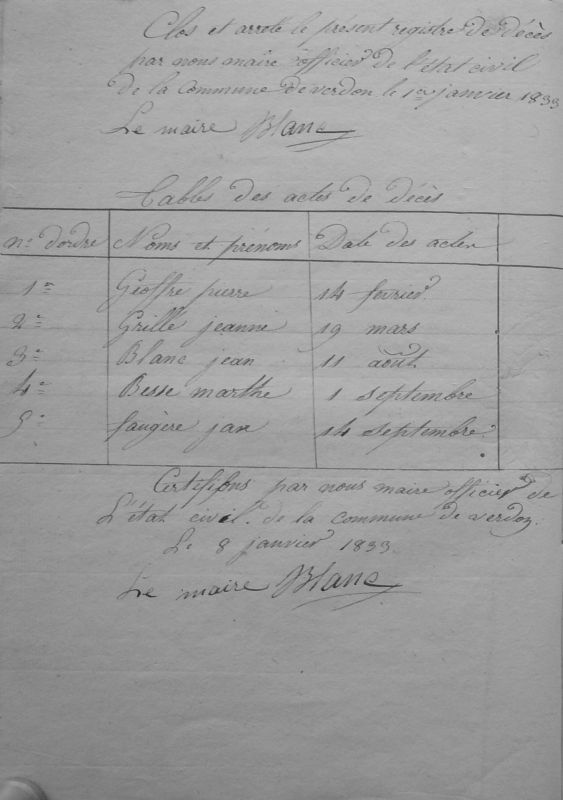 Clos et arrêté le présent registre de décès
par nous maire officier de l'état civil
de la commune de verdon le 1er janvier 1833
Le maire Blanc
Tables des actes de décès
no d'ordre Noms et prénoms Date des actes
1er Geoffre pierre 14 fevrier
2e Grille jeanne 19 mars
3e Blanc jean 11 août
4e Besse marthe 1 septembre
5e faugère jan 14 septembre
Certifions par nous maire officier de
L'état civil de la commune de verdon
Le 8 janvier 1833
Le maire Blanc